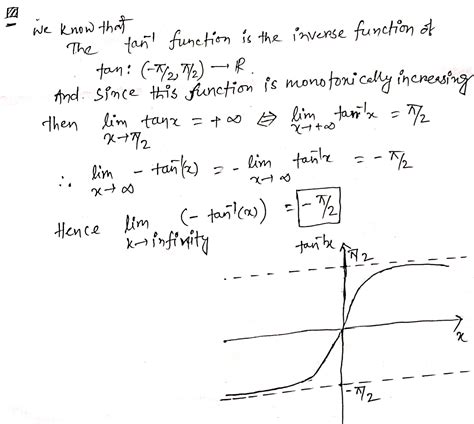 we know that
The tan⁻¹ function is the inverse function of
tan: (-π/2, π/2) → R.
And since this function is monotonically increasing
then lim x→π/2 tanx = +∞ ⇔ lim x→+∞ tan⁻¹x = π/2
∴ lim x→∞ - tan⁻¹(x) = - lim x→∞ tan⁻¹x = - π/2
Hence lim x→infinity (- tan⁻¹(x)) = - π/2
tan⁻¹x
π/2
x
-π/2